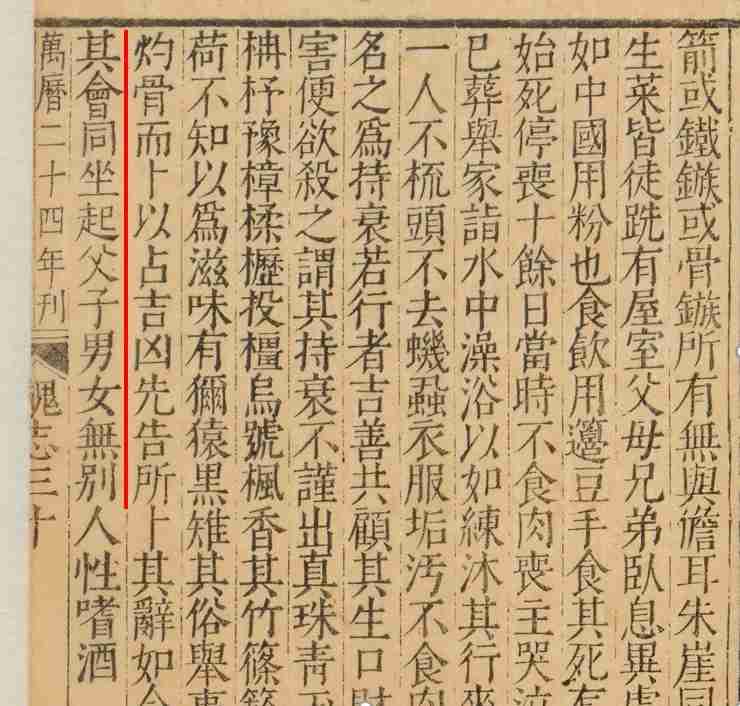 箭或鐵鏃或骨鏃所有無與儋耳朱崖同
生菜皆徒跣有屋室父母兄弟臥息異處
如中國用粉也食飲用籩豆手食其死有
始死停喪十餘日當時不食肉喪主哭泣
已葬舉家詣水中澡浴以如練沐其行來
一人不梳頭不去蟣蝨衣服垢汚不食肉
名之爲持衰若行者吉善共顧其生口財
害便欲殺之謂其持衰不謹出真珠青
枏杼豫樟楺櫪投橿烏號楓香其竹篠
荷不知以爲滋味有獮猿黑雉其俗舉事
灼骨而卜以占吉凶先告所卜其辭如令
其會同坐起父子男女無别人性嗜酒
萬曆二十四年刊
魏志三十